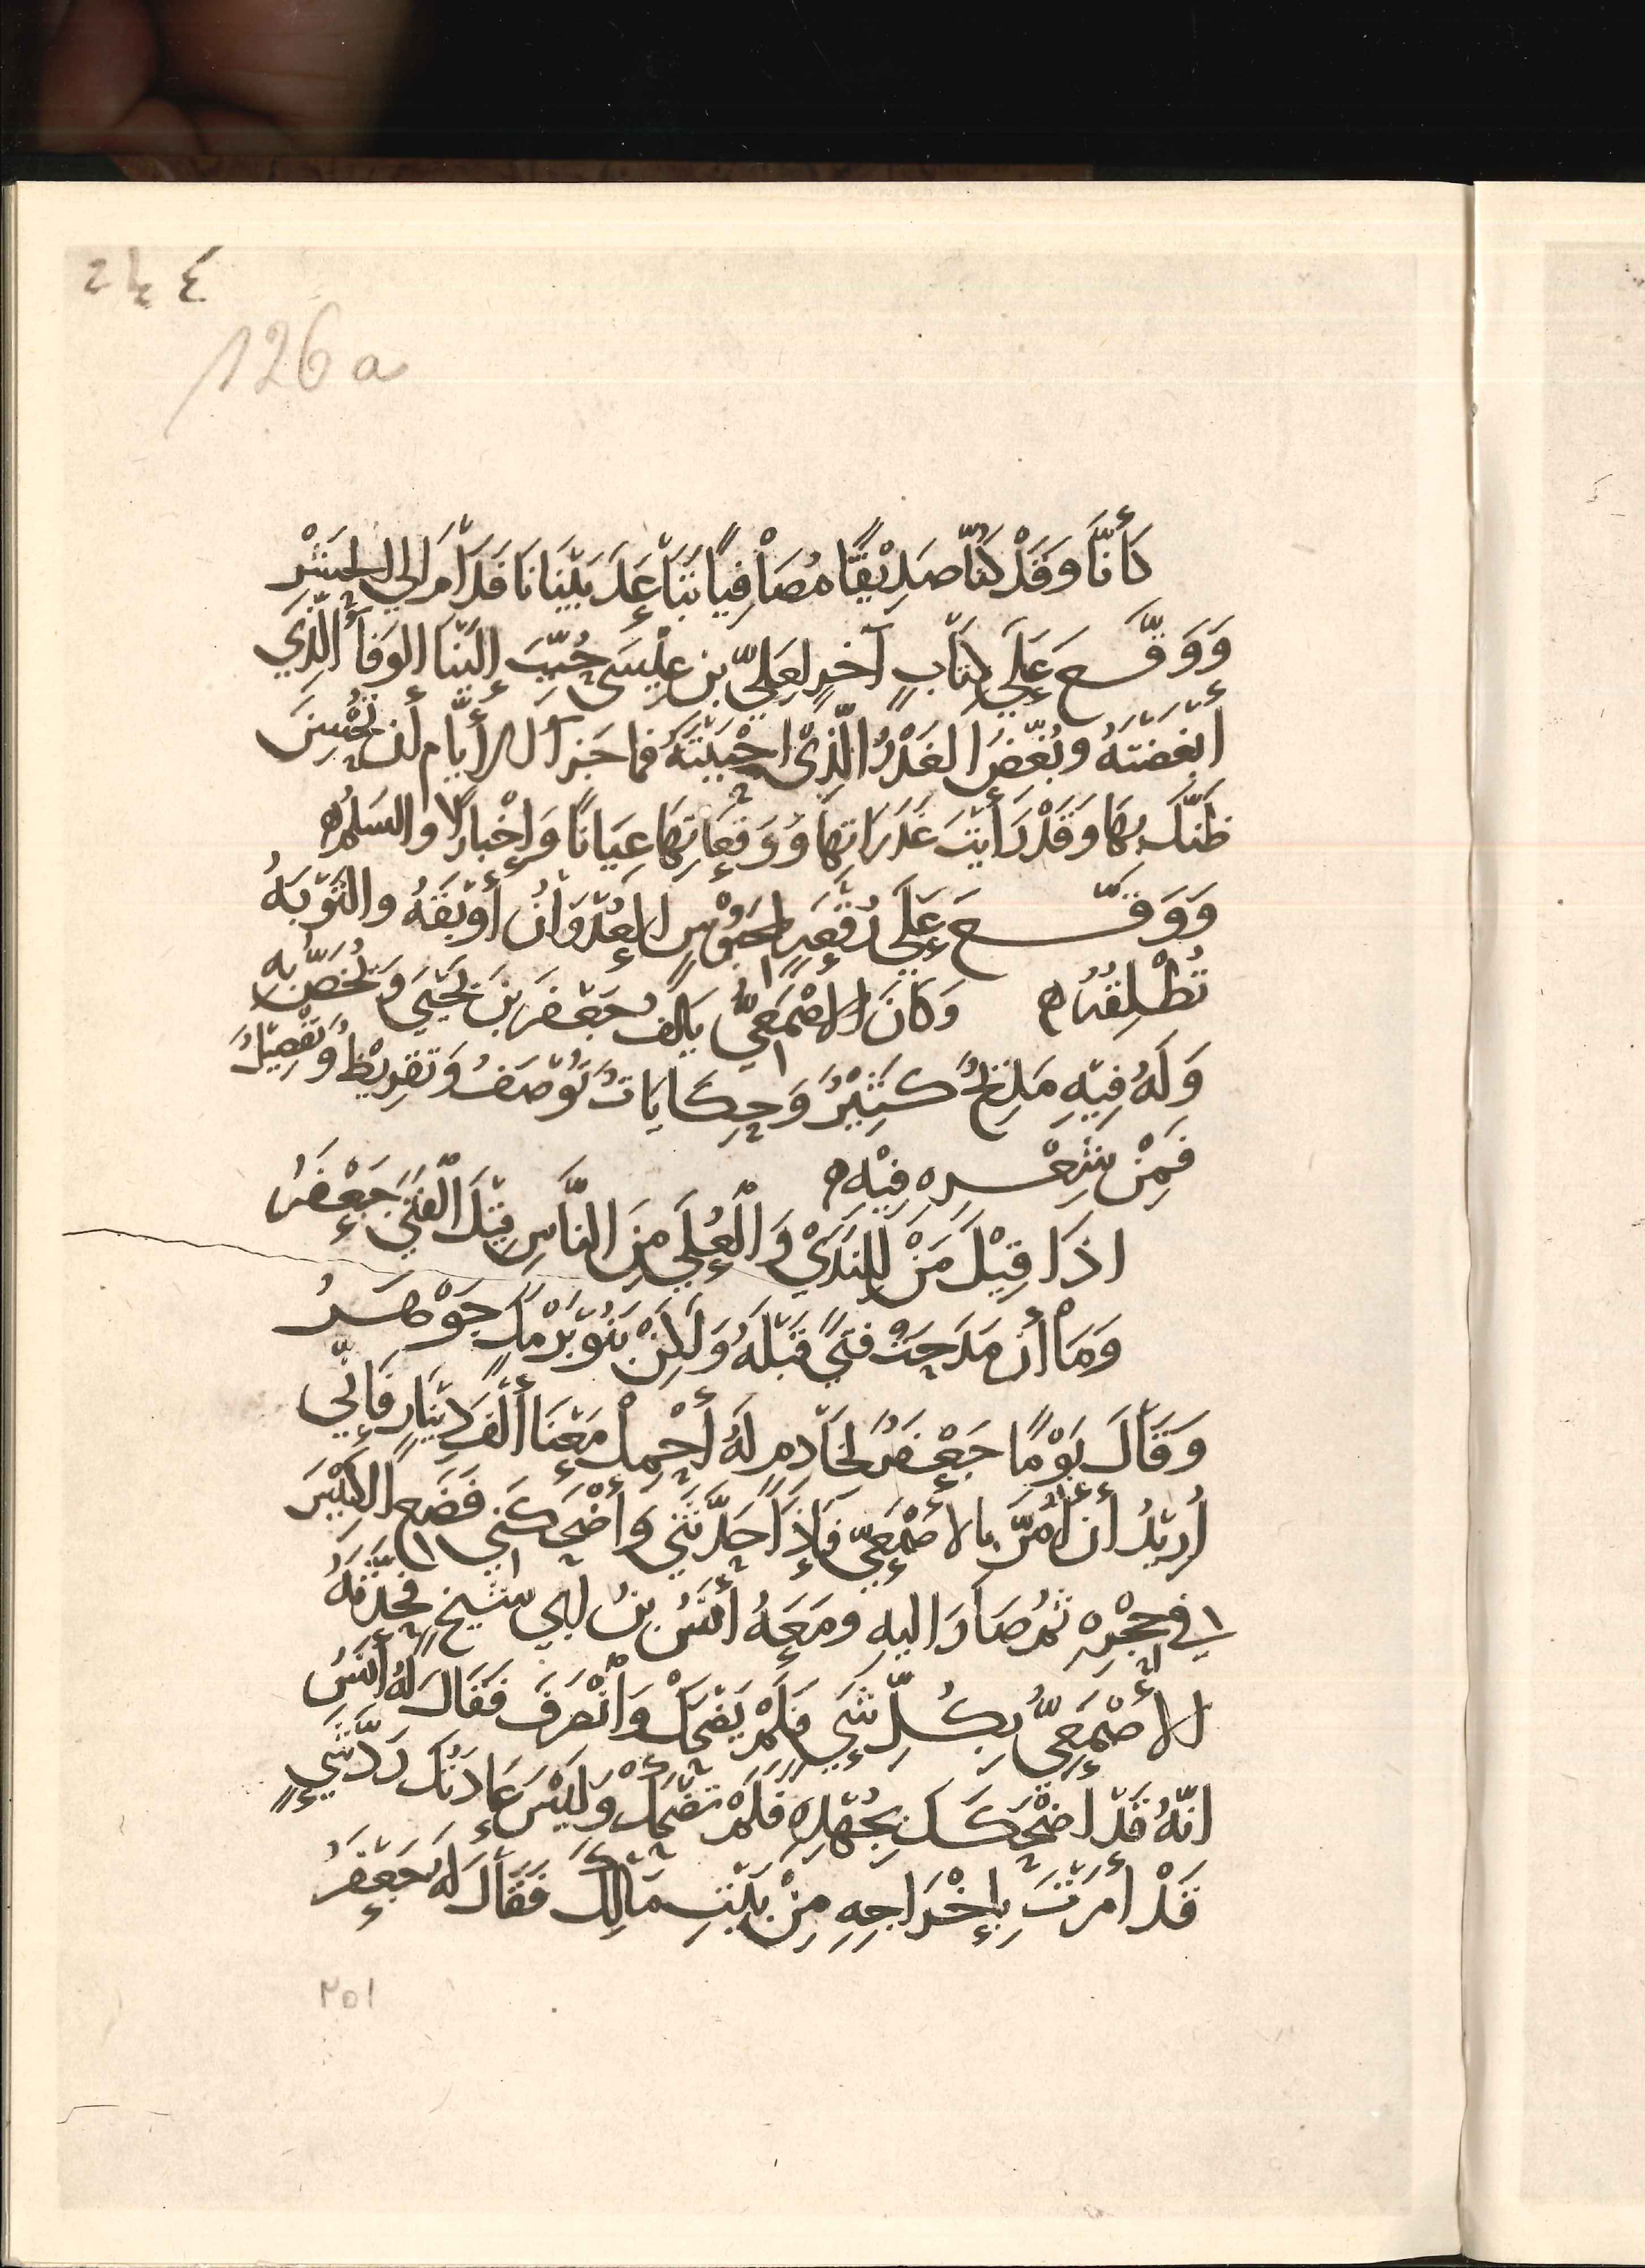 ٢٤٤
126a
كَأَنَّا وَقَدْ كُنَّا صَدِيْقًا مُصَافِيًا تَبَاعَدَ بَيْنَانَا فَدَامَ إلى الحَشْرِ
وَوَقَّع عَلَى كِتَابٍ آخرٍ لِعَلِيّ بن عِيْسَى حُبِّبَ إِلَيْنَا الوَفَأُ الَّذِي
أَبْغَضْتَهُ وبُغِّضَ الغَدْرُ الَّذِيْ احْبَبْتَهُ فما جَزَأ الأَيَّامِ أن تُحْسِنَ
ظَنَّكَ بِهَا وَقَدْ رَأَيْتَ غَدَرَاتِهَا وَوَقَعَاتِهَا عِيَانًا وَإِخْبارًا والسَلمُ ه
وَوَقَّع عَلَى رُقْعَةِ لمحبُوْسٍ العُدْوَانُ أَوْبَقَهُ والتَّوْبَةُ
تُطْلِقُهُ ه وَكَانَ الاَصْمَعِيُّ يَالَفُ جَعْفَرَ بنَ يَحْيَى وَيُخَصُّ بِهِ
وَلَهُ فِيْهِ مَدْحٌ كَثِيْرٌ وَحِكَايَاتٌ تُوْصَفُ وَتَقْرِيْظٌ وَتَفْضِيْلٌ
فَمِنْ شِعْرِه فِيْهِ ه
اذَا قِيْلَ مَنْ لِلنَدَيْ وَالْعُلَى مِنَ النَّاسِ قِيْلَ الْفَتَى جَعْفَرُ
وَمَا أن مَدَحْتُ فَتًى قَبْلَهُ وَلَكِنْ بَنُوْ بَرْمَكٍ جَوْهَرُ
وَقَالَ يَوْمًا جَعْفَرٌ لِخَادِمٍ لَهُ أَحْمِلْ مَعَنَا أَلْفَ دِيْنَارٍ فَإِنّي
أُرِيْدُ أَن أَمُرَّ بالاَصْمَعِيّ فَإِذَا حَدَّثَنِي وَأَضْحَكَنِي فَضَعِ الكِيْسَ
في حِجْرِهِ ثم صَارَ اليهِ ومَعَهُ أَنَسُ بنُ أبي شيخٍ فحَدَّثَهُ
الأَصْمَعِيُّ بِكُلِّ شَيٍ فَلَمْ يَضْحَكْ وَانْصَرَفَ فَقَالَ لَهُ أَنَسُ
انّهُ قَدْ اضْحَكَكَ بِجُهْدِهِ فَلَمْ تَضْحَكْ وَلَيْسَ عَادَتُكَ رَدَّ شَيٍ
قَدْ أَمَرْتَ بإِخْرَاجِهِ مِنْ بَيْتِ مَالِكَ فَقَالَ لَهُ جَعْفَرُ
٢٥١